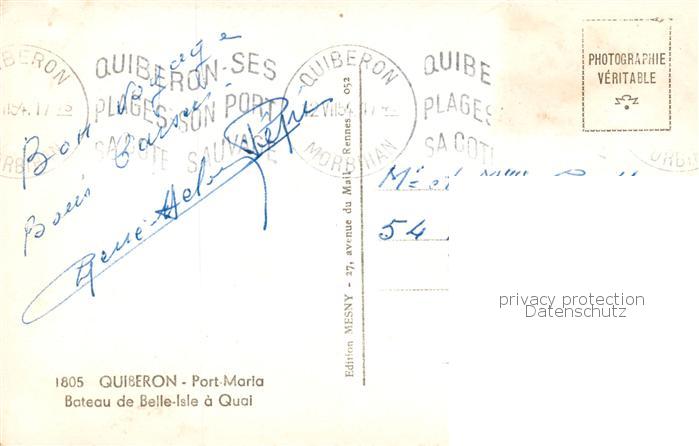 QUIBERON
QUIBERON-SES
PLAGES-SON PORT
SA COTE SAUVAGE
QUIBERON
MORBIHAN
QUIBE
PLAGES
SA COTE
PHOTOGRAPHIE
VÉRITABLE
Bon voyage
Bons baisers
René
54
Edition MESNY - 27, avenue du Mail - Rennes 052
privacy protection
Datenschutz
1805 QUIBERON - Port-Maria
Bateau de Belle-Isle à Quai